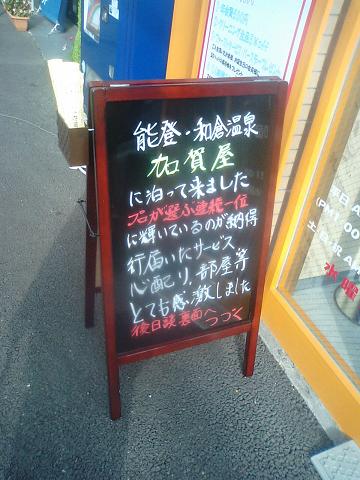 能登・和倉温泉
加賀屋
に泊って来ました
プロが選ぶ連続一位
に輝いているのが納得
行届いたサービス
心配り、部屋等
とても感激しました
後日談裏面へつづく